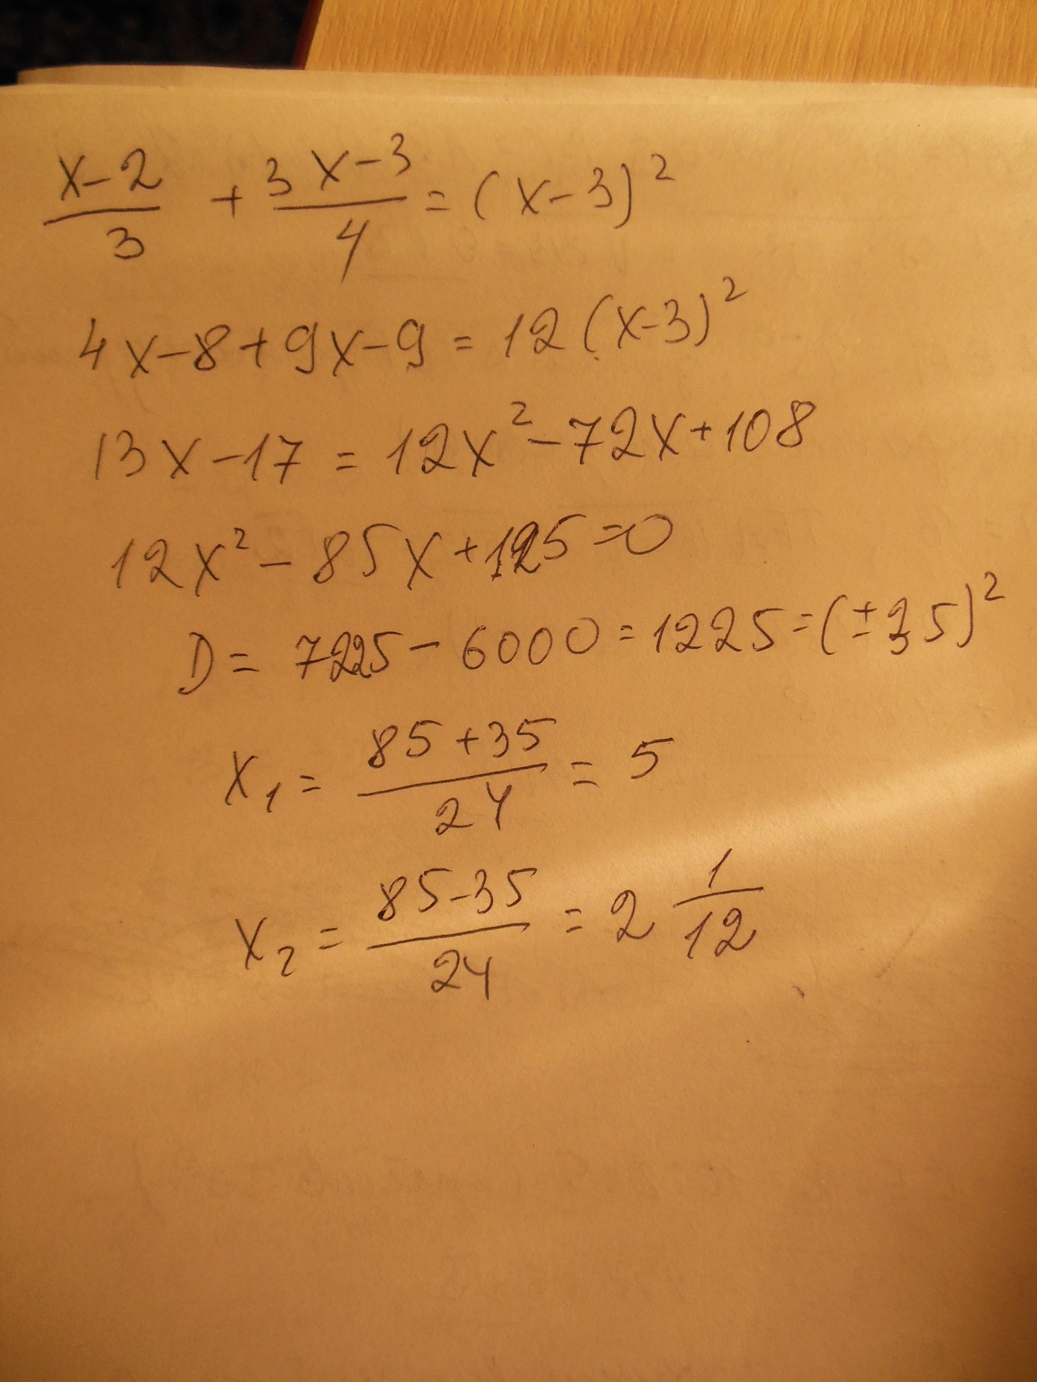 (x-2)/3 + (3x-3)/4 = (x-3)²
4x-8+9x-9 = 12(x-3)²
13x-17 = 12x²-72x+108
12x²-85x+125=0
D= 7225-6000=1225=(±35)²
x₁= (85+35)/24 = 5
x₂= (85-35)/24 = 2 1/12